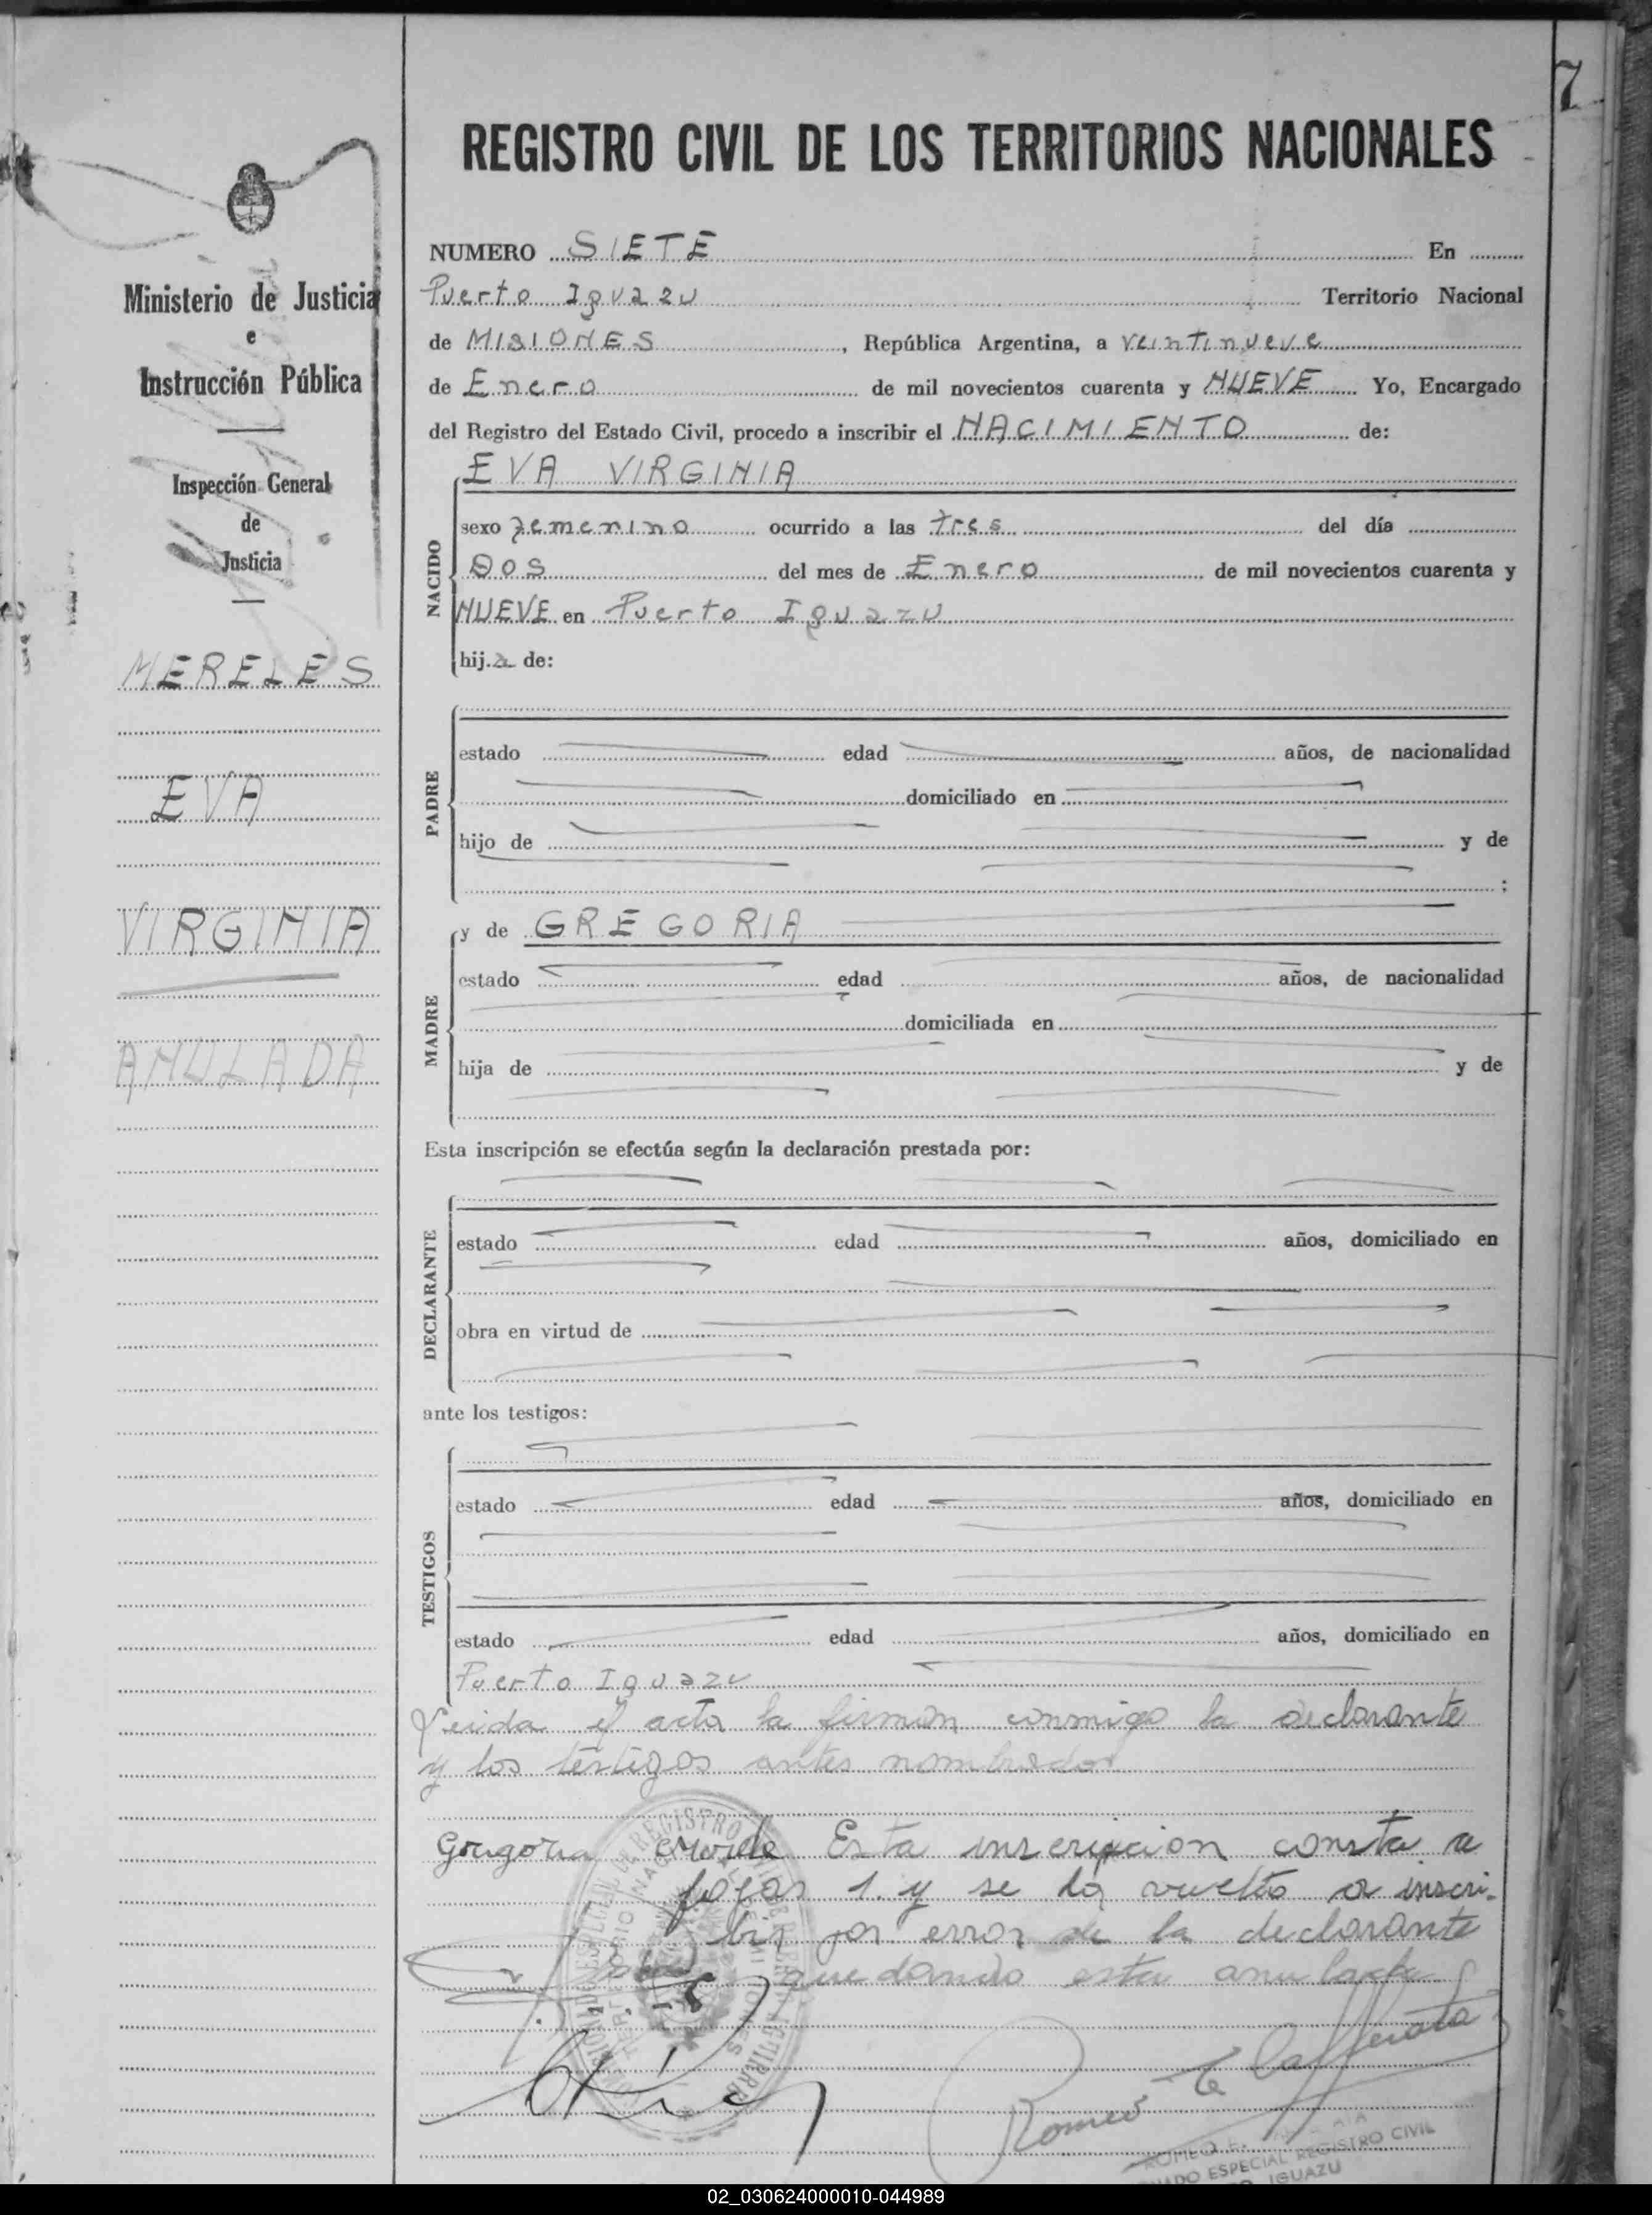 7
REGISTRO CIVIL DE LOS TERRITORIOS NACIONALES
Ministerio de Justicia
e
Instrucción Pública
Inspección General
de
Justicia
MERELES
EVA
VIRGINIA
ANULADA
NUMERO SIETE En
Puerto Iguazu Territorio Nacional
de MISIONES, República Argentina, a veintinueve
de Enero de mil novecientos cuarenta y NUEVE Yo, Encargado
del Registro del Estado Civil, procedo a inscribir el NACIMIENTO de:
EVA VIRGINIA
NACIDO
sexo femenino ocurrido a las tres del día
Dos del mes de Enero de mil novecientos cuarenta y
NUEVE en Puerto Iguazu
hija de:
PADRE
estado edad años, de nacionalidad
domiciliado en
hijo de y de
;
MADRE
y de GREGORIA
estado edad años, de nacionalidad
domiciliada en
hija de y de
Esta inscripción se efectúa según la declaración prestada por:
DECLARANTE
estado edad años, domiciliado en
obra en virtud de
ante los testigos:
TESTIGOS
estado edad años, domiciliado en
estado edad años, domiciliado en
Puerto Iguazu
Leida el acta la firman conmigo la declarante
y los testigos antes nombrados
Gregoria Esta inscripcion consta a
fojas 1 y se ha vuelto a inscri-
bir por error de la declarante
quedando esta anulada
Romeo E. Cafferata
ROMEO E.
ESPECIAL REGISTRO CIVIL
IGUAZU
02_030624000010-044989